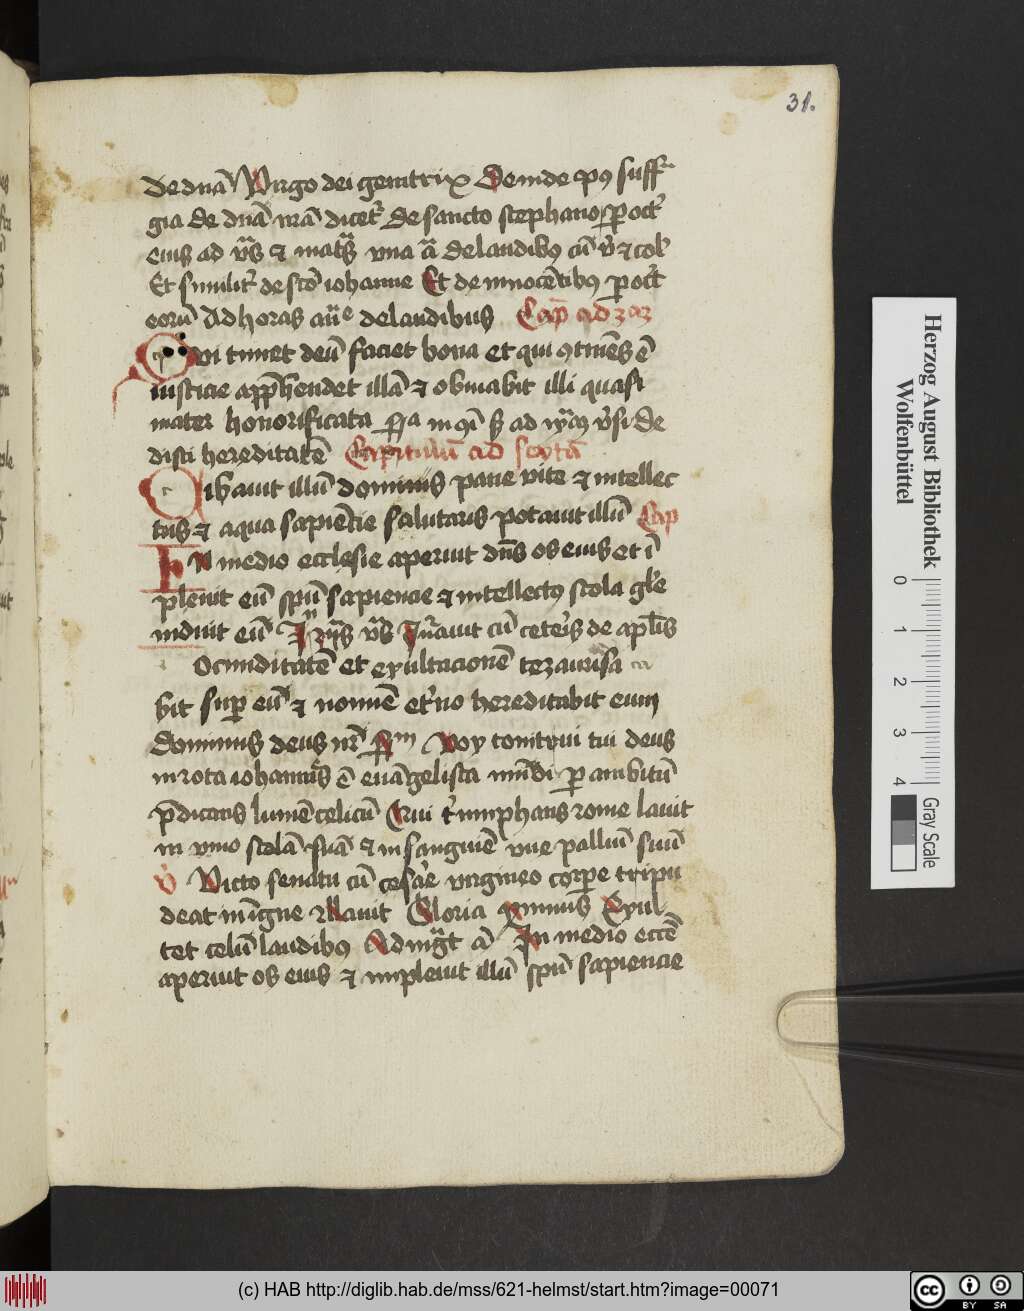 31.
De dnā Virgo dei genitrix Deinde pꝰ suff
gia de dnā nrā dicet᷑ de sancto stephano ꝑ oct᷑
eius ad vs̄ ⁊ mat᷑ vna ā de laudibꝰ cū v̄ ⁊ col
Et simili᷑ de scō iohanne Et de innocētibꝰ ꝑ oct᷑
eorū Ad horas an̄e de laudibus Cap̄ ad
Qui timet deū faciet bona et qui ꝯtinēs ē
iusticie app̄hendet illā ⁊ obuiabit illi quasi
mater honorificata
disti hereditatē Capitulū ad sextā
Cibauit illū dominus pane vite ⁊ intellec
tus ⁊ aqua sapiēcie salutaris potauit illū Cap
In medio ecclesie aperuit dn̄s os eius et ī
pleuit eū spū sapiencie ⁊ intellectꝰ stola gl̄e
induit eū In vs̄ Iurauit cū ceteis de apl̄is
ocunditatē et exultacionē tezaurisa
bit suꝑ eū ⁊ nomīe et᷑no hereditabit eum
dominus deus nr̄ Vox tonitrui tui deus
in rota iohannis ē euāgelista mūdi ꝑ ambitū
p̄dicans lumē celicū Qui t᷑umphans rome lauit
in vino stolā suā ⁊ in sanguīe oue palliū suū
v̄ Victo senatu cū cesare virgineo corꝑe tripu
deat in igne Lauit Gloria Exul
tet celū laudibꝰ Ad mgt̄ ā In medio eccē
aperuit os eius ⁊ impleuit illū spū sapiencie
Herzog August Bibliothek
Wolfenbüttel
0 1 2 3 4
Gray Scale
(c) HAB http://diglib.hab.de/mss/621-helmst/start.htm?image=00071
cc BY SA